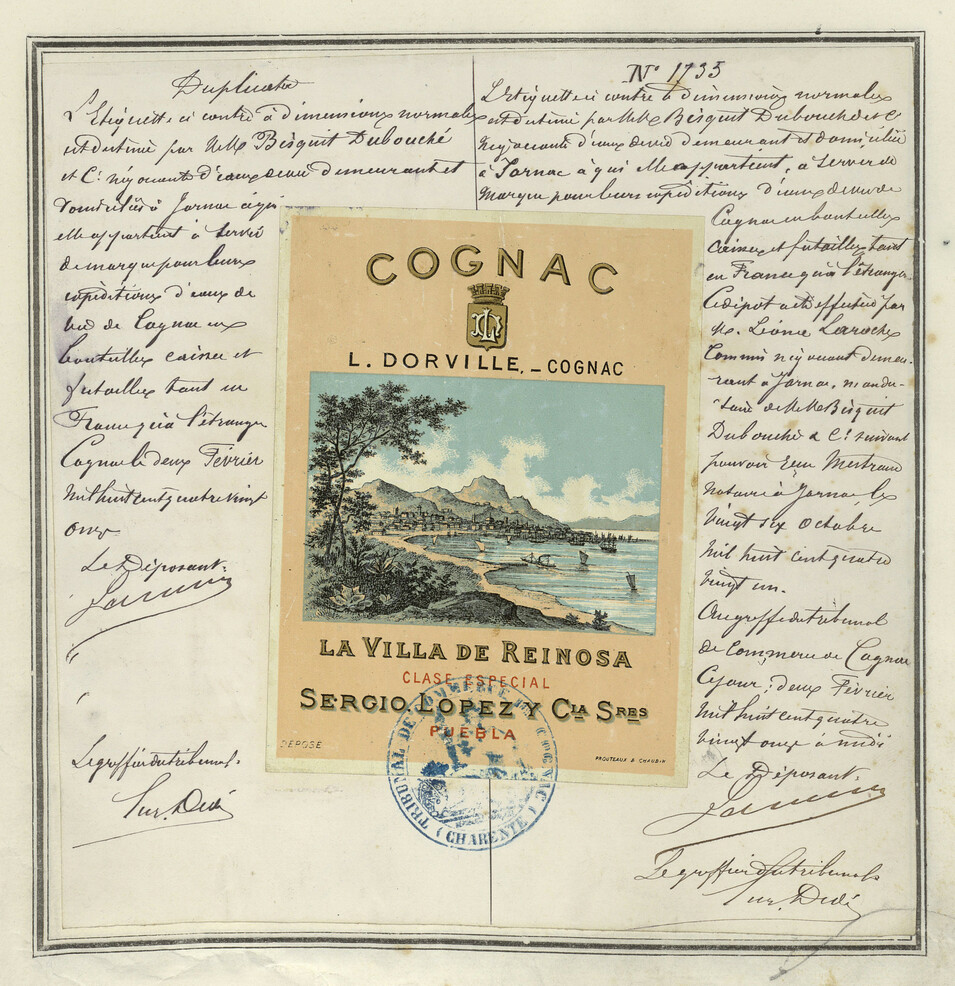 Duplicata
L'Etiquette ci contre à dimensions normales
est destinée par MM Bisquit Dubouché
et Cie négociants d'eaux de vie demeurant et
domiciliés à Jarnac à qui
elle appartient à servir
de marque pour leurs
expéditions d'eaux de
vie de Cognac en
bouteilles caisses et
futailles tant en
France qu'à l'étranger
Cognac le deux Février
mil huit cent quatre vingt
onze
Le Déposant:
Le greffier du tribunal:
No 1735
L'Etiquette ci contre à dimensions normales
est destinée par MM Bisquit Dubouché et Cie
négociants d'eaux de vie demeurant et domiciliés
à Jarnac à qui elle appartient, à servir de
marque pour leurs expéditions d'eaux de vie de
Cognac en bouteilles
caisses et futailles tant
en France qu'à l'étranger
Ce dépôt a été effectué par
M. Léonce Laroche
Commis négociant demeu-
rant à Jarnac, mandu-
taire de MM Bisquit
Dubouché & Cie suivant
pouvoir reçu Mestreau
notaire à Jarnac le
vingt six octobre
mil huit cent quatre
vingt un.
Au greffe du tribunal
de Commerce de Cognac
Ce jour, deux Février
mil huit cent quatre
vingt onze à midi
Le Déposant:
Le greffier du tribunal
COGNAC
L. DORVILLE, _ COGNAC
LA VILLA DE REINOSA
CLASE ESPECIAL
SERGIO LOPEZ Y CIA SRES
PUEBLA
DÉPOSÉ
PROUTEAUX & CHAUBIN
TRIBUNAL DE COMMERCE DE COGNAC
(CHARENTE)